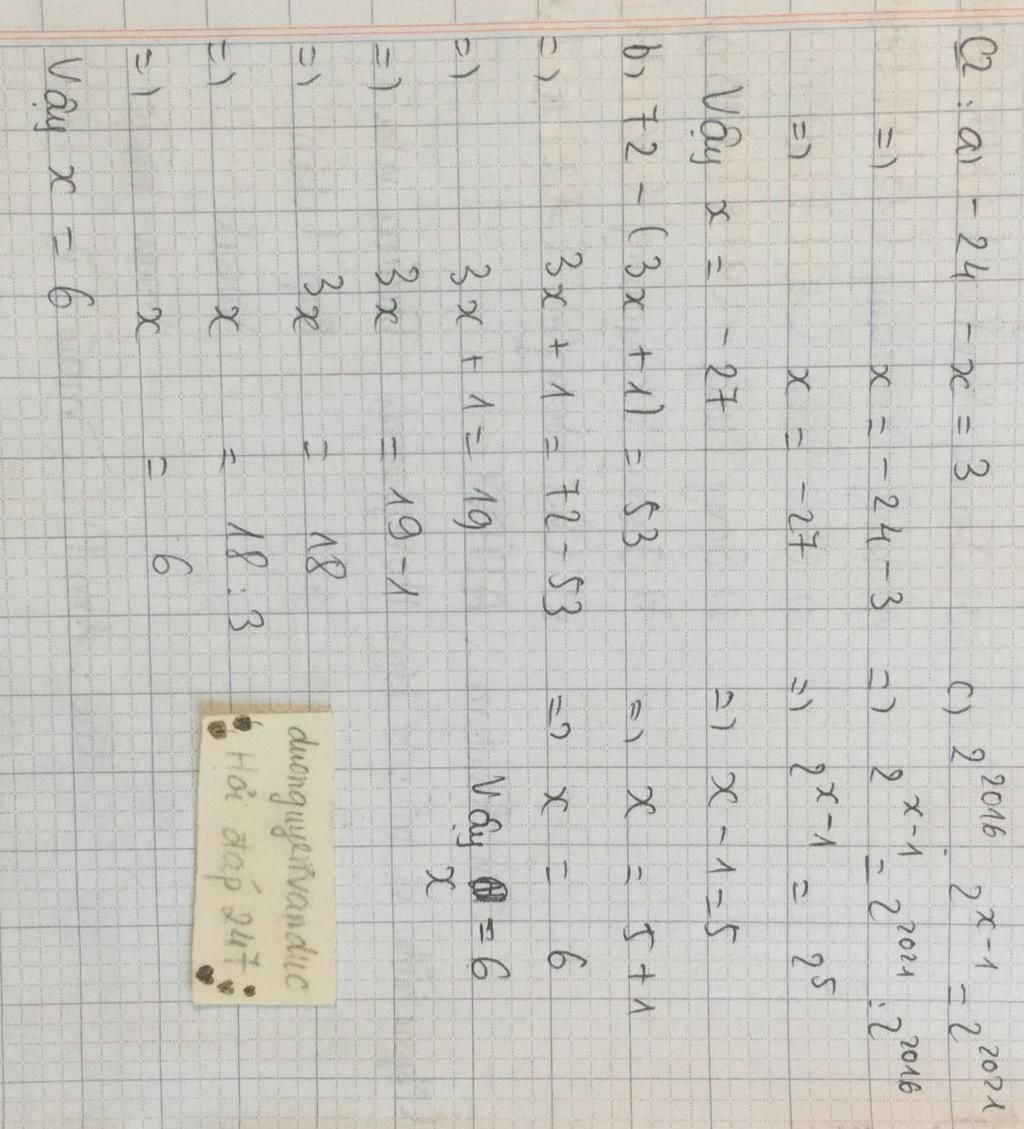 C2 : a) - 24 - x = 3
=) x = - 24 - 3
=) x = - 27
Vậy x = - 27
b) 72 - (3x + 1) = 53
=) 3x + 1 = 72 - 53
=) 3x + 1 = 19
=) 3x = 19 - 1
=) 3x = 18
=) x = 18 : 3
=) x = 6
Vậy x = 6
c) 2^2016 . 2^x-1 = 2^2021
=) 2^x-1 = 2^2021 : 2^2016
=) 2^x-1 = 2^5
=) x - 1 = 5
=) x = 5 + 1
=) x = 6
Vậy x = 6
duonguyenvanduc
Hỏi đáp 247